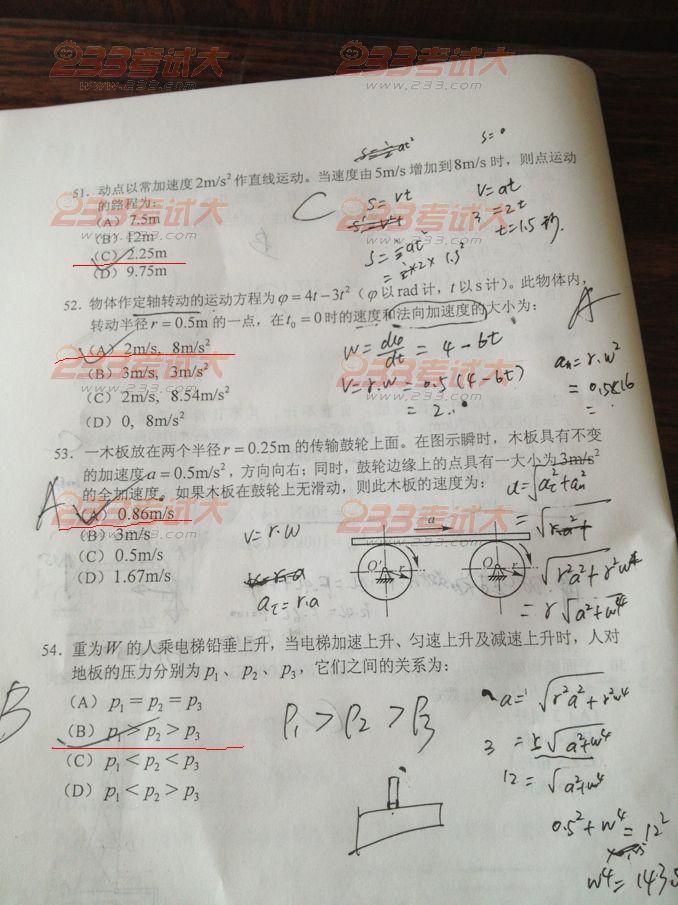 233考试大 233考试大
www.233.com www.233.com
51. 动点以常加速度2m/s²作直线运动。当速度由5m/s增加到8m/s时，则点运动
的路程为：
(A) 7.5m
(B) 12m
(C) 2.25m
(D) 9.75m
C
S=½at²
S=0
S=vt
V=at
3=2t
t=1.5秒.
S=½at²
=½×2×1.5²
52. 物体作定轴转动的运动方程为φ=4t-3t²（φ以rad计，t以s计）。此物体内，
转动半径r=0.5m的一点，在t₀=0时的速度和法向加速度的大小为：
(A) 2m/s, 8m/s²
(B) 3m/s, 3m/s²
(C) 2m/s, 8.54m/s²
(D) 0, 8m/s²
A
w=dφ/dt=4-6t
V=r.w=0.5(4-6t)
=2.0
aₙ=r.w²
=0.5×16
=
53. 一木板放在两个半径r=0.25m的传输鼓轮上面。在图示瞬时，木板具有不变
的加速度a=0.5m/s²，方向向右；同时，鼓轮边缘上的点具有一大小为3m/s²
的全加速度。如果木板在鼓轮上无滑动，则此木板的速度为：
(A) 0.86m/s
(B) 3m/s
(C) 0.5m/s
(D) 1.67m/s
A
V=r.w
aτ=r.a
a
O' r O r
a=√aτ²+aₙ²
=√
√r²a²+r²w⁴
=r√a²+w⁴
54. 重为W的人乘电梯铅垂上升，当电梯加速上升、匀速上升及减速上升时，人对
地板的压力分别为p₁、p₂、p₃，它们之间的关系为：
(A) p₁=p₂=p₃
(B) p₁>p₂>p₃
(C) p₁<p₂<p₃
(D) p₁<p₂>p₃
B
P₁>P₂>P₃
a=√r²a²+r²w⁴
3=r√a²+w⁴
12=√a²+w⁴
0.5²+w⁴=12²
w⁴=143